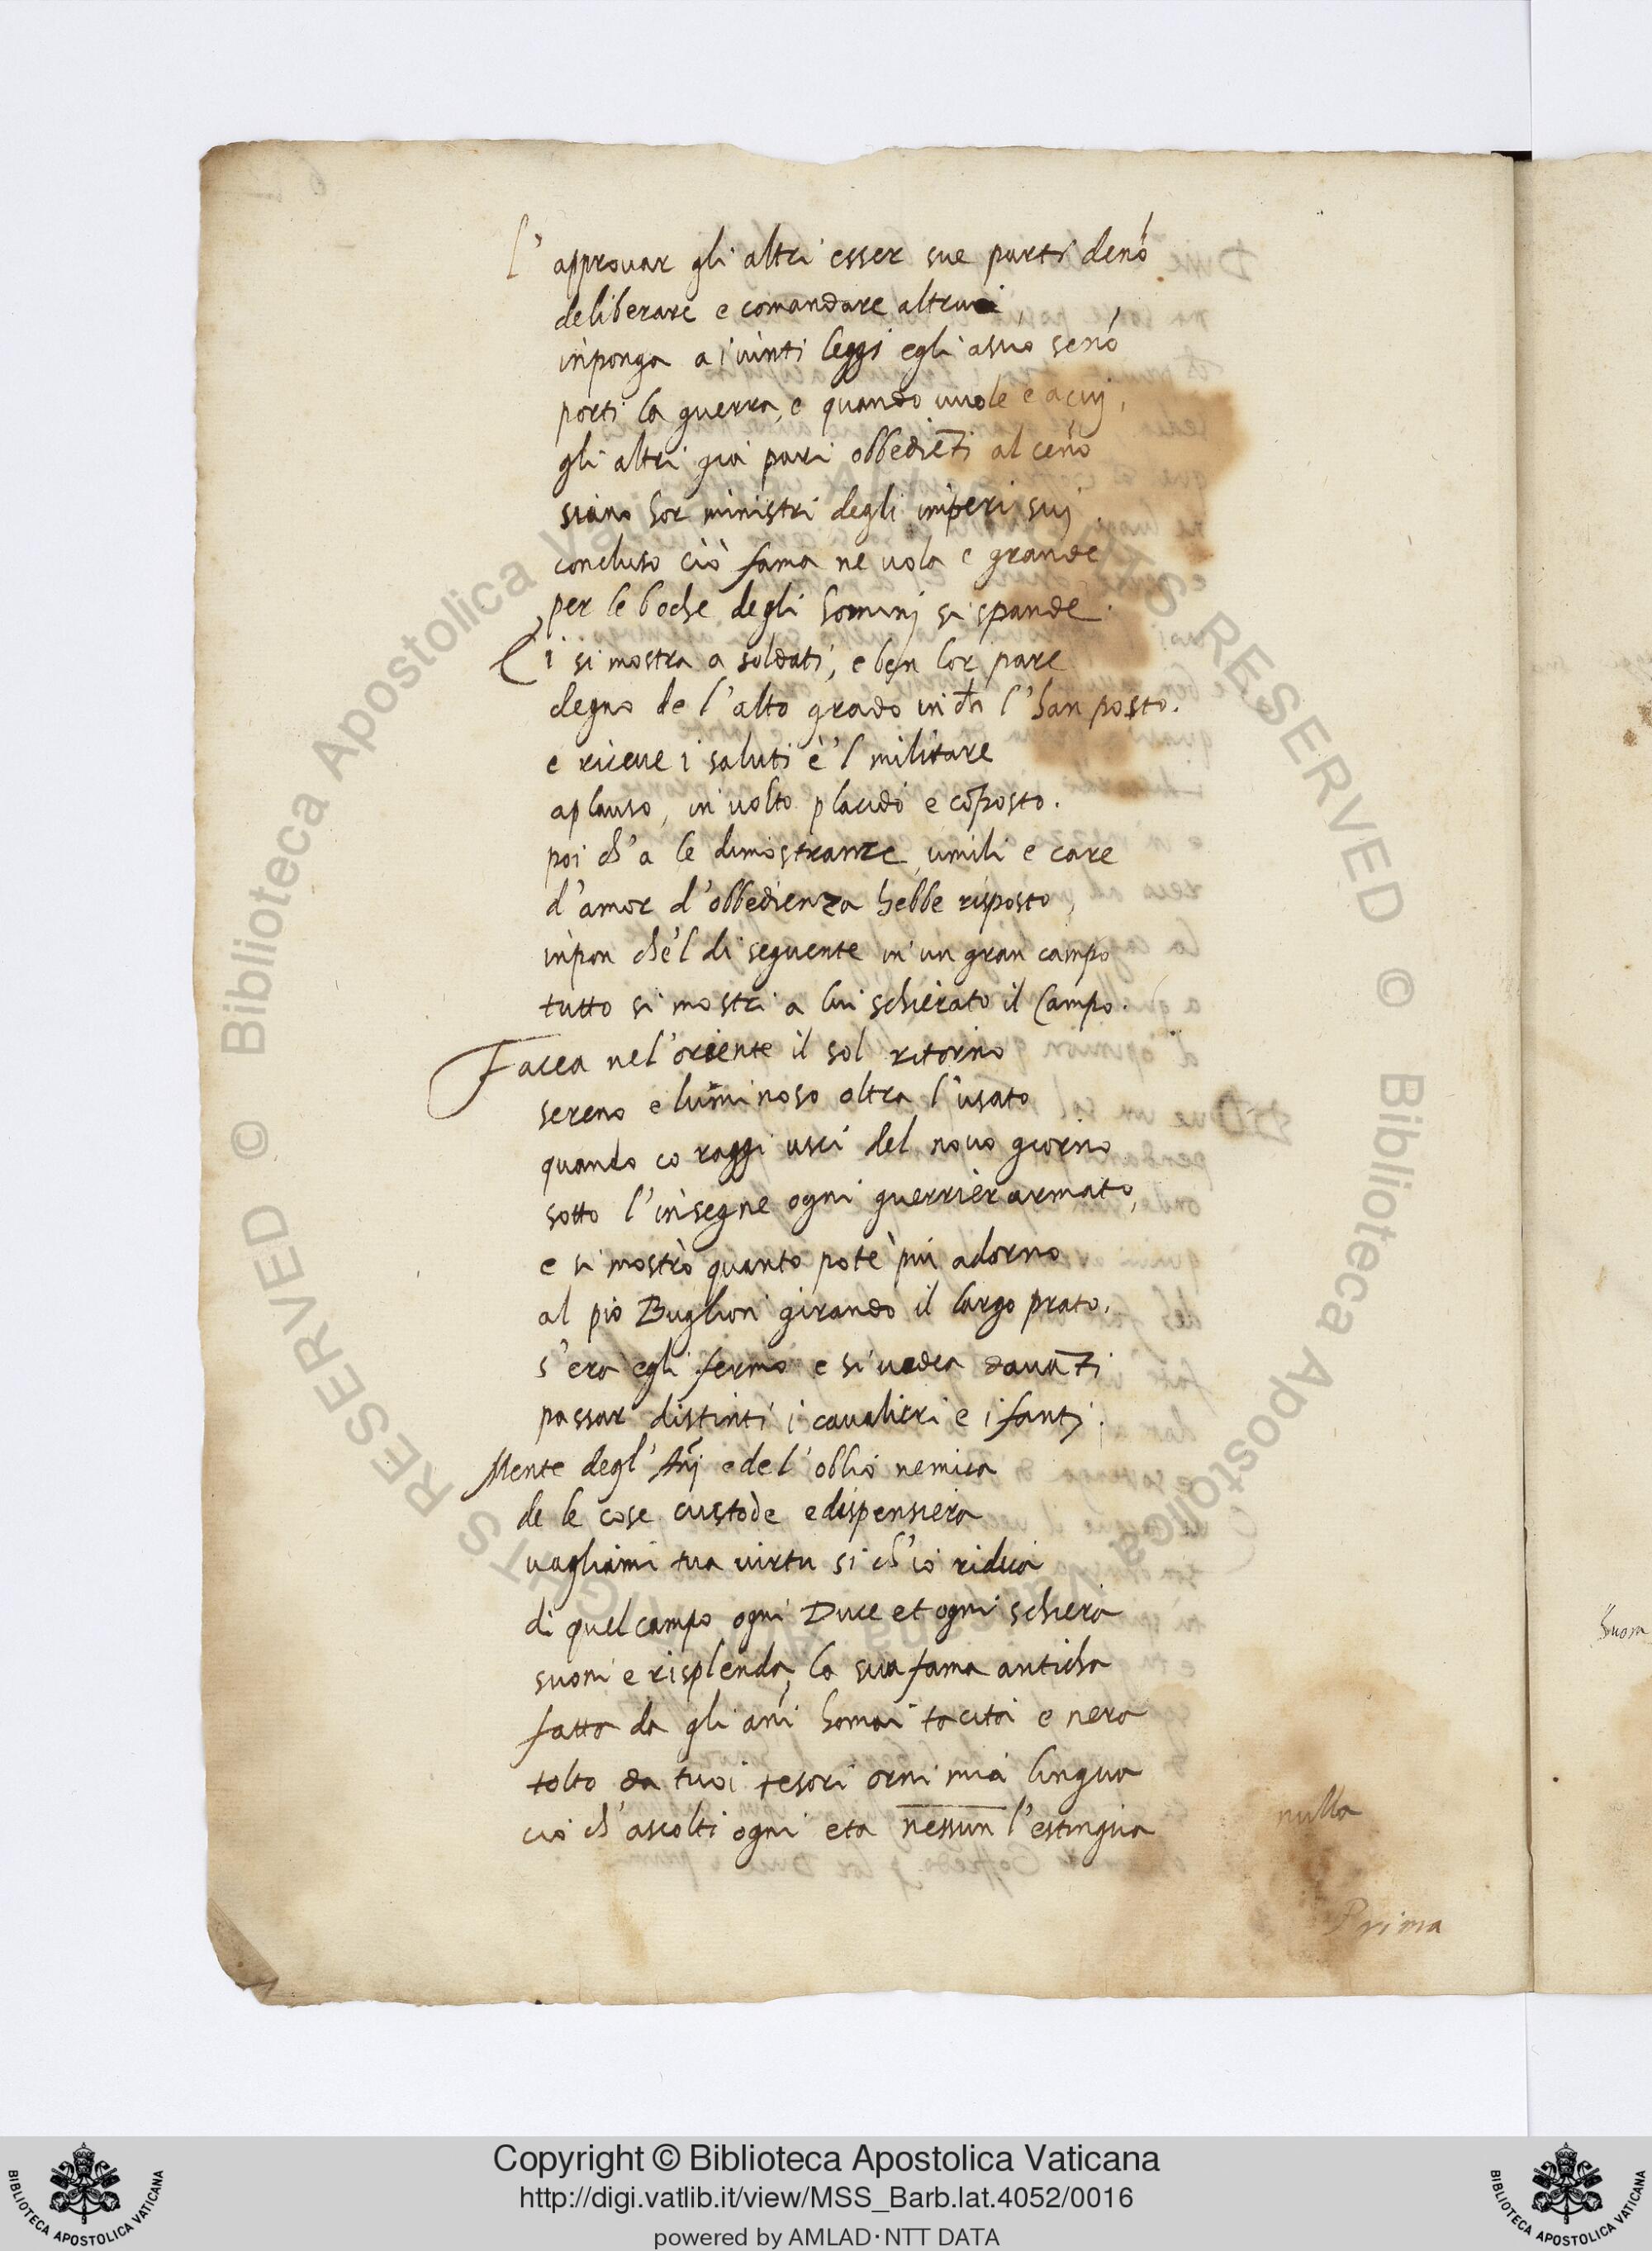 l' approuar gli altri esser sue parti denó
deliberare e comandare altrui
inponga a i uinti leggi egli a suo senó
porti la guerra, e quando uuole e a cuj,
gli altri gia pari obbediēti al cenó
siano hor ministri degli inperi suj.
concluso ciò fama ne uola e grande
per le boche degli hominj si spande.
Ei si mostra a soldati, e ben lor pare
degno de l'alto grado in ch l'han posto.
e riceue i saluti e'l militare
aplauso, in uolto placido e cōposto.
poi ch'a le dimostranze umili e care
d'amor d'obbedienza hebbe risposto,
inpon che'l di seguente in un gran campo
tutto si mostri a lui schierato il Campo.
Facea nel'oriente il sol ritorno
sereno e luminoso oltra l'usato
quando co raggi uscì del nouo giorno
sotto l'insegne ogni guerrier armato,
e si mostrò quanto potè piu adorno
al pio Buglion girando il largo prato.
s'era egli fermo e si uedea dauāti
passar distinti i caualieri e i fanti.
Mente degl' Anj e de l'oblio nemica
de le cose custode e dispensiera
uagliami tua uirtu si ch'io ridica
di quel campo ogni Duce et ogni schiera
suoni e risplenda, la sua fama anticha
fatta da gli ani homai tacita e nera
tolto da tuoi tesori orni mia lingua
ciò ch'ascolti ogni eta nessun l'estingua
nulla
Prima
Copyright © Biblioteca Apostolica Vaticana
http://digi.vatlib.it/view/MSS_Barb.lat.4052/0016
powered by AMLAD·NTT DATA
BIBLIOTECA APOSTOLICA VATICANA
BIBLIOTECA APOSTOLICA VATICANA